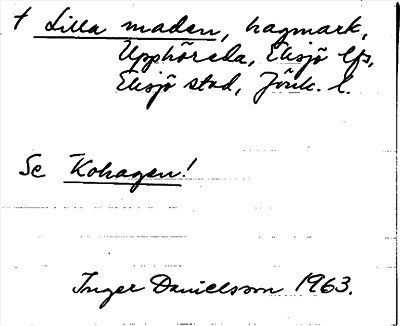 † Lilla maden, hagmark,
Upphöreda, Eksjö lfs,
Eksjö stad, Jönk. l.
Se Kohagen!
Inger Danielsson 1963.